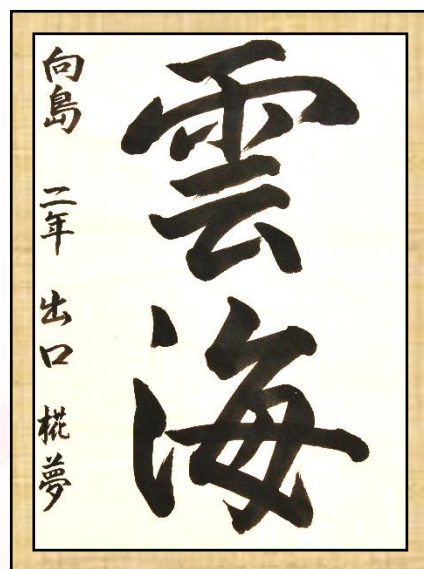 雲海
向島 二年 出口 椛夢